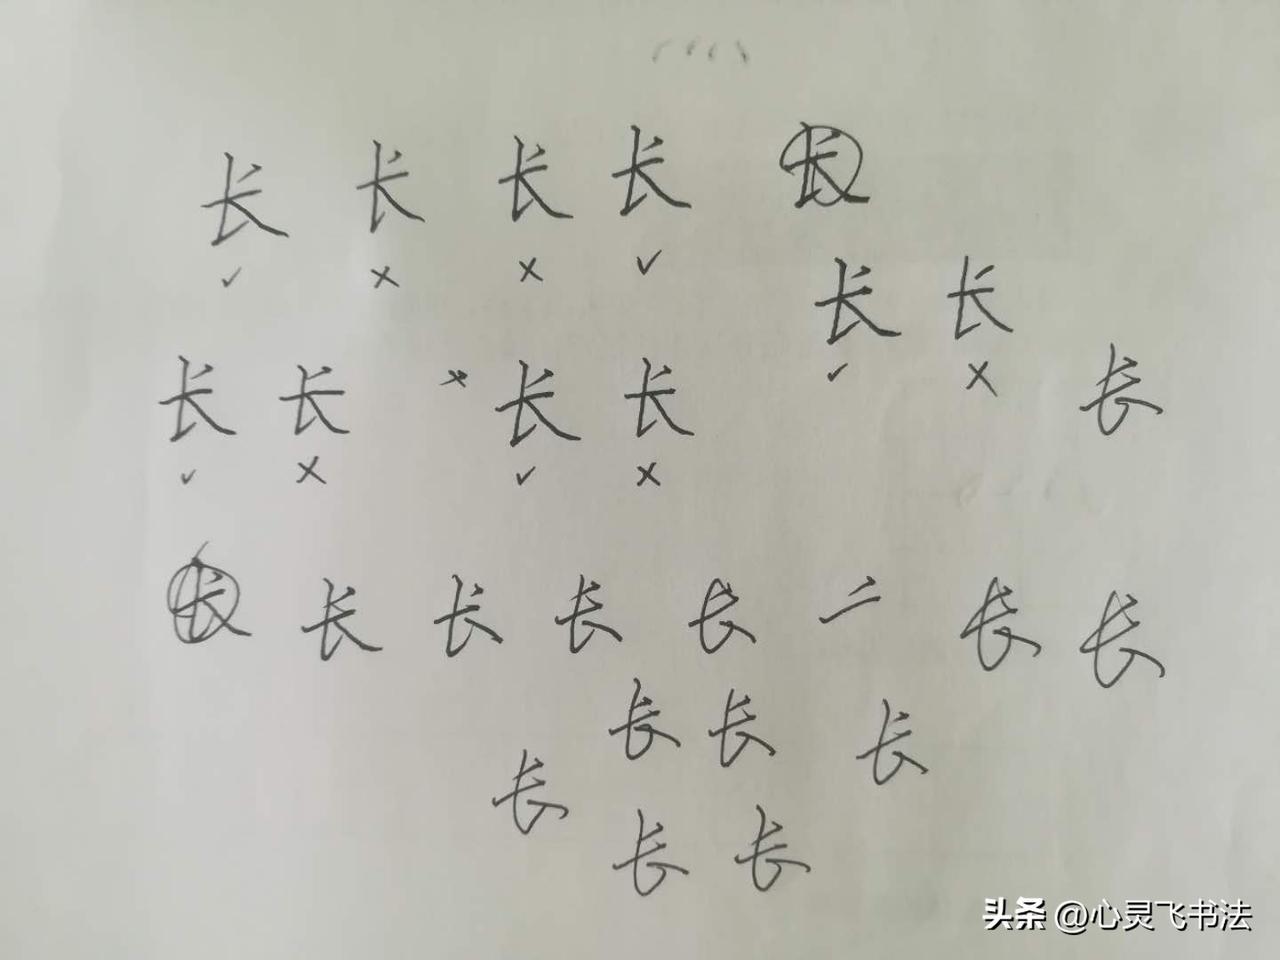 长 长 长 长 长
✓ × × ✓
长 长
✓ ×
长 长 × 长 长 长
✓ × ✓ ×
长 长 长 长 长 二 长 长
长 长 长
长
长 长
头条 @心灵飞书法